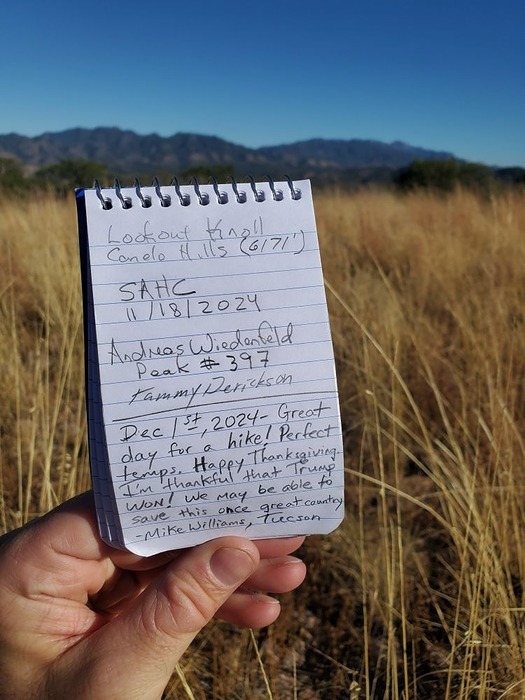 Lookout Knoll
Canelo Hills (6171')
SAHC
11/18/2024
Andreas Wiedenfeld
Peak # 397
Tammy Derickson
Dec 1st, 2024- Great
day for a hike! Perfect
temps. Happy Thanksgiving.
I'm thankful that Trump
WON! We may be able to
save this once great country
-Mike Williams, Tucson